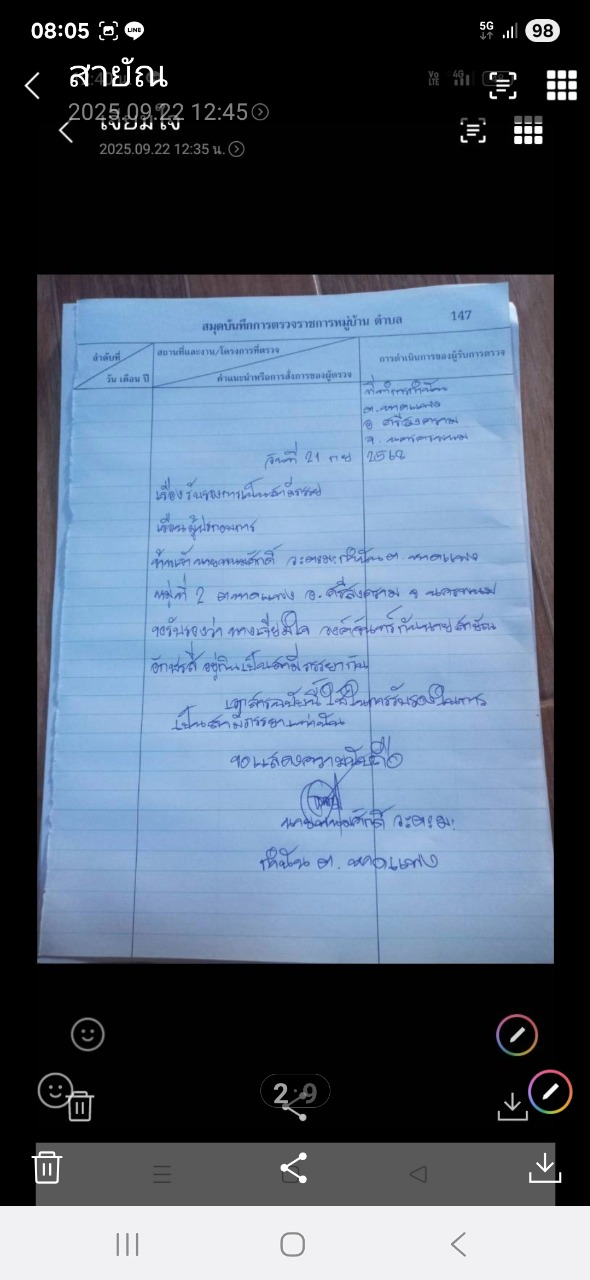 08:05
5G
98
สายัณ
2025.09.22 12:45
เจียมใจ
2025.09.22 12:35 น.
สมุดบันทึกการตรวจราชการหมู่บ้าน ตำบล 147
ลำดับที่
วัน เดือน ปี
สถานที่และงาน/โครงการที่ตรวจ
คำแนะนำหรือการสั่งการของผู้ตรวจ
การดำเนินการของผู้รับการตรวจ
ที่ทำการกำนัน
ต. หาดแพง
อ ศรีสงคราม
จ. นครพนม
วันที่ 21 กย 2568
เรื่อง รับรองการเป็นสามีภรรยา
เรียน ผู้ประกอบการ
ข้าพเจ้า กำนัน ต. หาดแพง
หมู่ที่ 2 ต.หาดแพง อ. ศรีสงคราม จ นครพนม
ขอรับรองว่า นางเจียมใจ องค์จันทร์ กับนาย สายัณ
อยู่กินเป็นสามีภรรยากัน
เอกสารฉบับนี้ใช้ในการรับรองในการ
เป็นสามีภรรยาเท่านั้น
ขอแสดงความนับถือ
กำนัน ต. หาดแพง
2 9